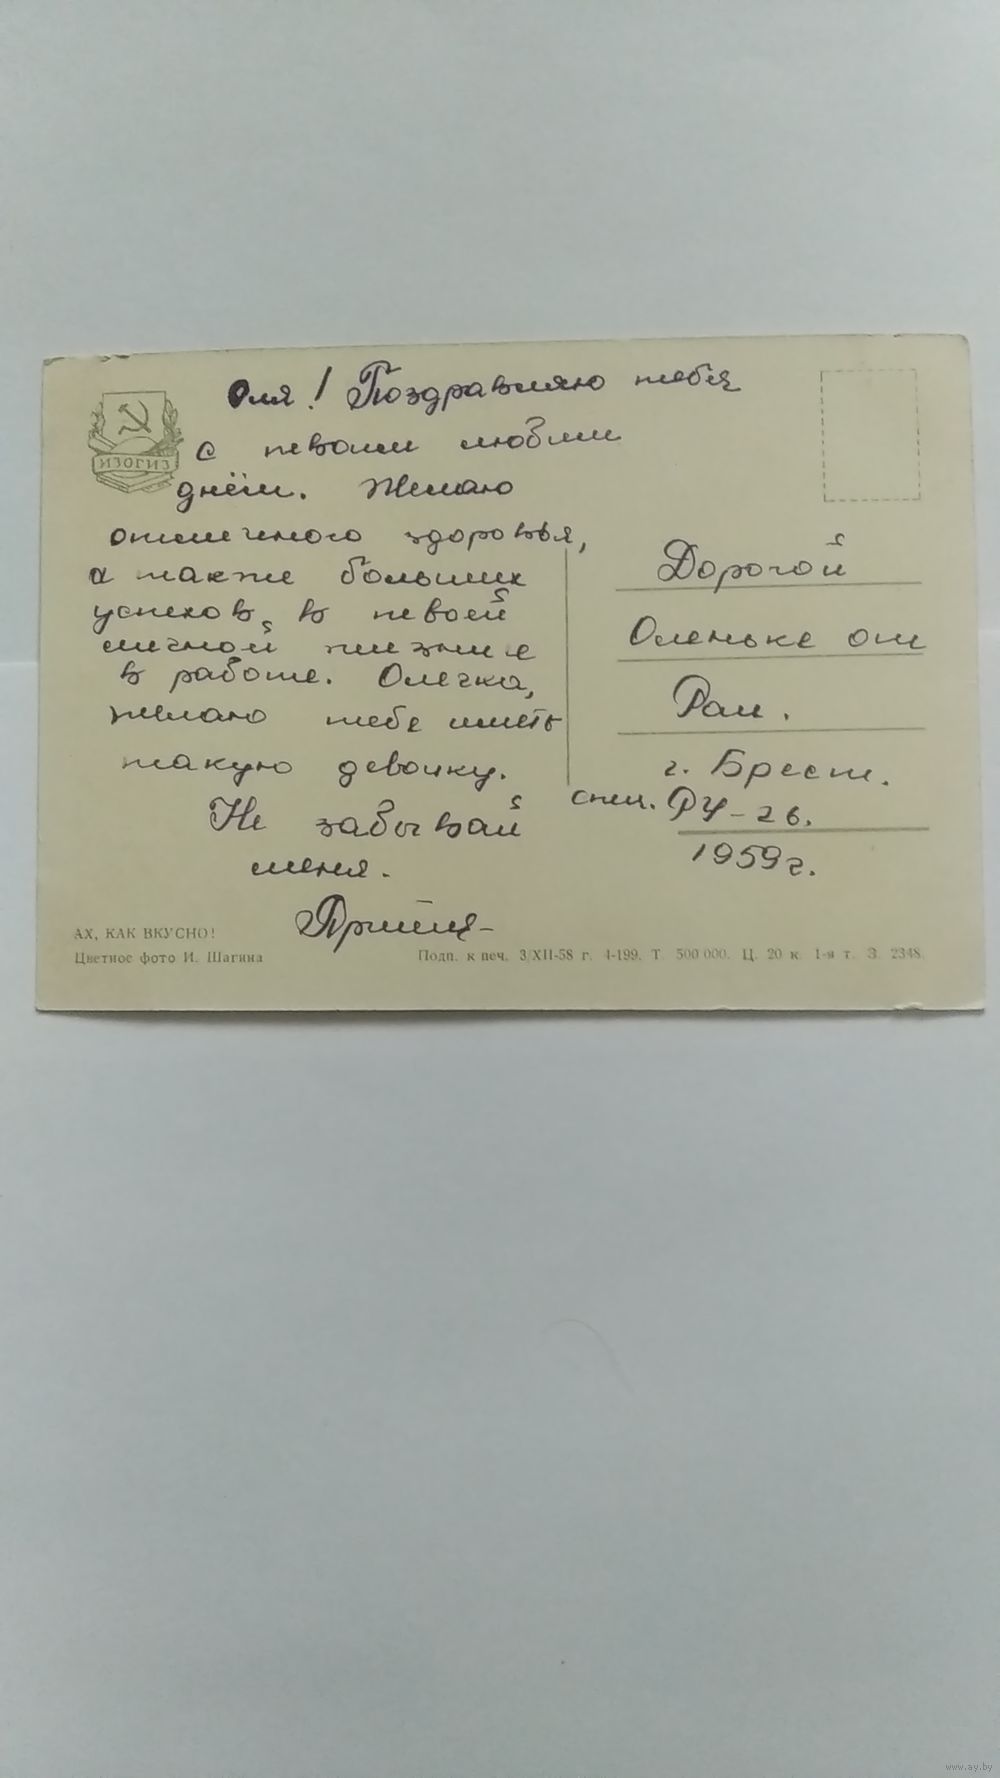 ИЗОГИЗ
Оля! Поздравляю тебя
с твоим любым
днём. Желаю
отличного здоровья,
а также больших
успехов в твоей
личной жизни и
в работе. Олечка,
желаю тебе иметь
такую девочку.
Не забывай
меня.
Дорогой
Оленьке от
Раи.
г. Брест.
спец. РУ-26.
1959г.
АХ, КАК ВКУСНО!
Цветное фото И. Шагина
Подп. к печ. 3/XII-58 г. 4-199. Т. 500 000. Ц. 20 к. 1-я т. З. 2348.
www.ay.by